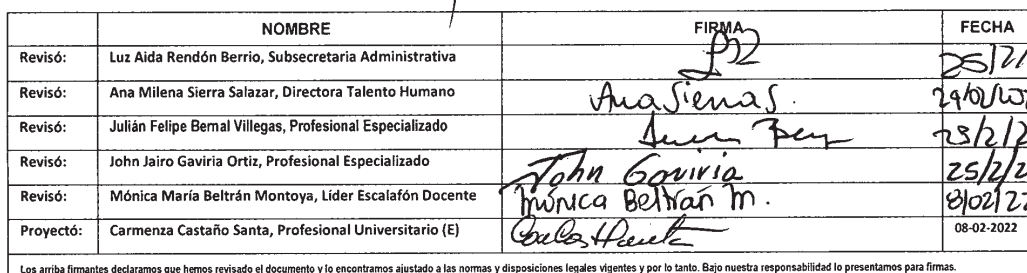 NOMBRE FIRMA FECHA
Revisó: Luz Aida Rendón Berrio, Subsecretaria Administrativa
Revisó: Ana Milena Sierra Salazar, Directora Talento Humano Ana Sierra S.
Revisó: Julián Felipe Bernal Villegas, Profesional Especializado
Revisó: John Jairo Gaviria Ortiz, Profesional Especializado John Gaviria 25/2/2
Revisó: Mónica María Beltrán Montoya, Líder Escalafón Docente Mónica Beltrán M. 8/02/22
Proyectó: Carmenza Castaño Santa, Profesional Universitario (E) 08-02-2022
Los arriba firmantes declaramos que hemos revisado el documento y lo encontramos ajustado a las normas y disposiciones legales vigentes y por lo tanto. Bajo nuestra responsabilidad lo presentamos para firmas.